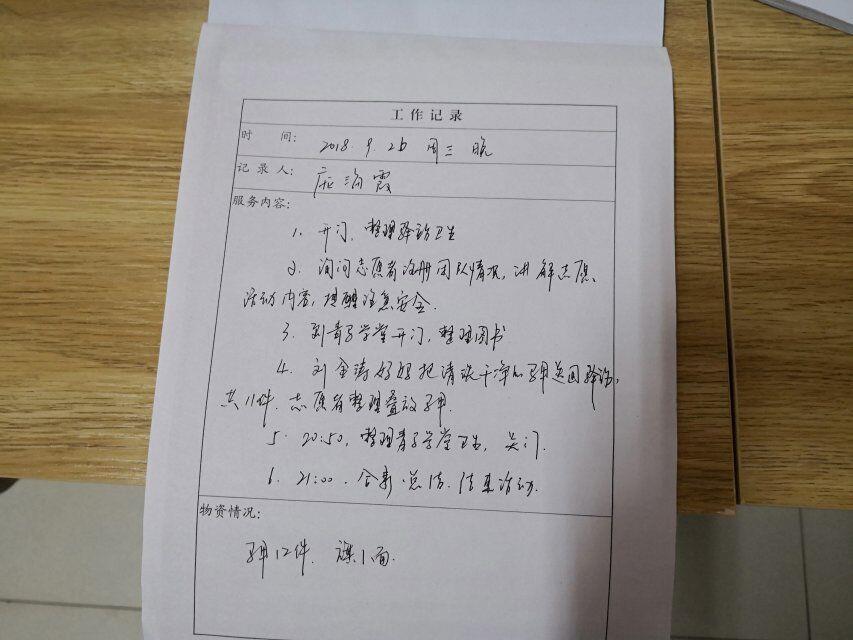 工作记录
时 间: 2018.9.26 周三 晚
记录人: 庞海霞
服务内容:
1. 开门,整理驿站卫生
2. 询问志愿者注册团队情况,讲解志愿
活动内容,提醒注意安全.
3. 到青子学堂开门,整理图书
4. 刘金涛妈妈把清洗干净的马甲送回驿站,
共11件.志愿者整理叠放马甲.
5. 20:50,整理青子学堂卫生,关门.
6. 21:00.合影.总结.结束活动.
物资情况:
马甲12件. 旗1面.